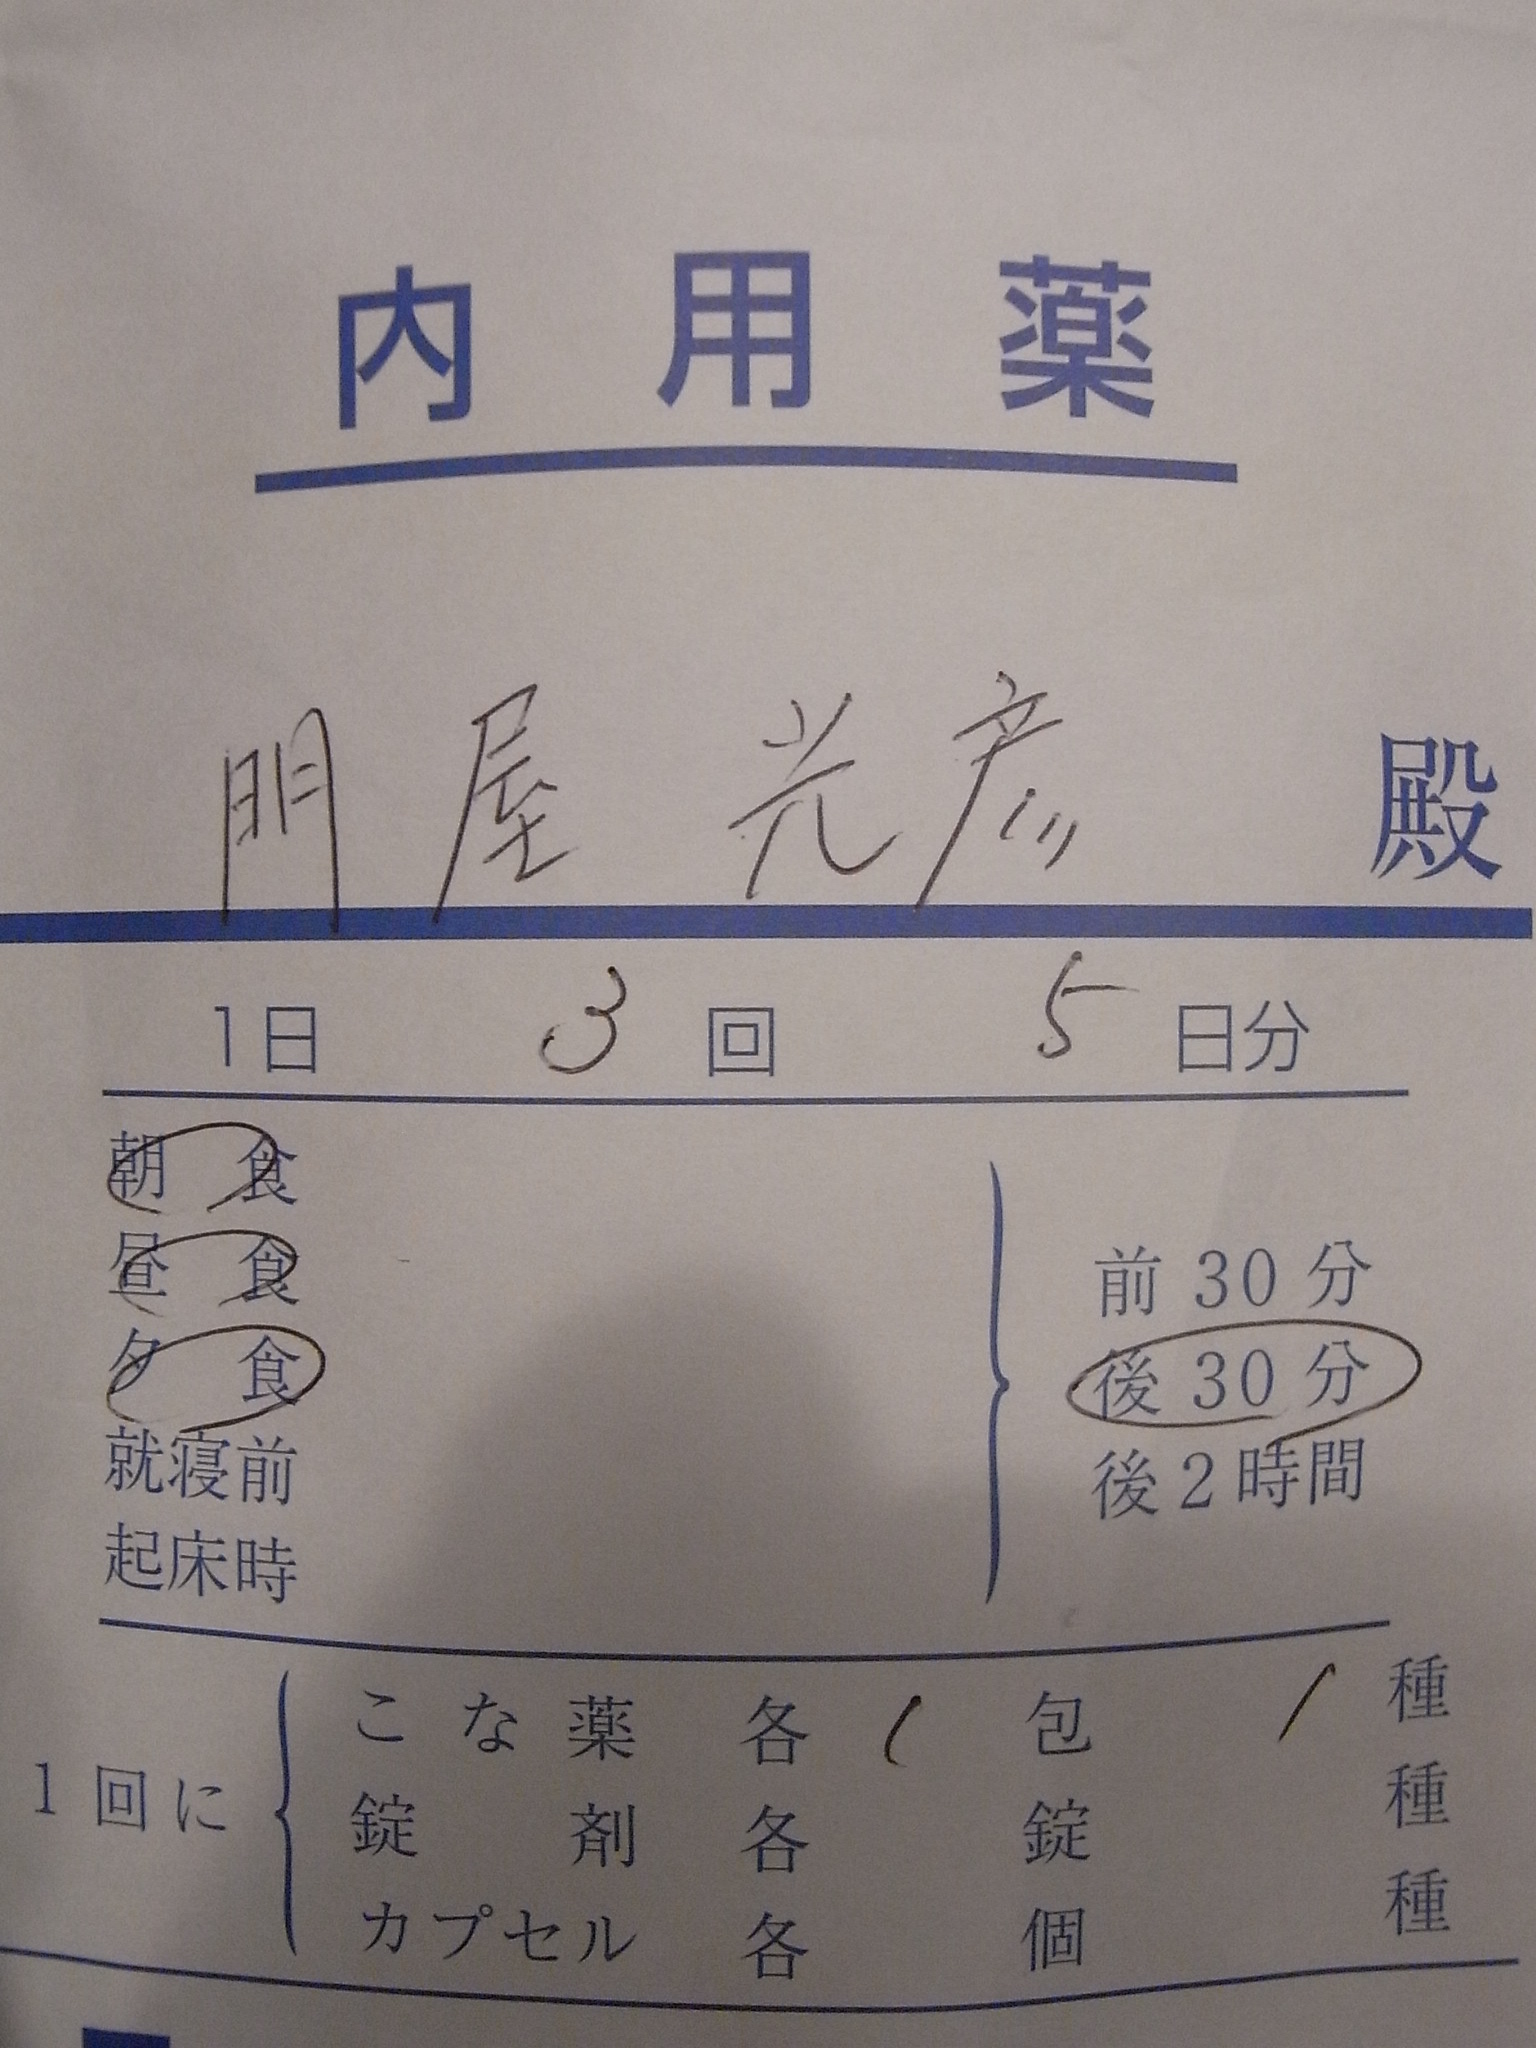 内用薬
門屋 光彦 殿
1日 3 回 5 日分
朝食
昼食
夕食
就寝前
起床時
前30分
後30分
後2時間
1回に
こな薬 各 1 包 1 種
錠剤 各 錠 種
カプセル 各 個 種